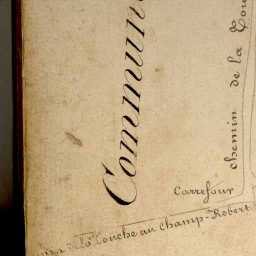 Commune
chemin de la
Carrefour
de la Touche au champ-Robert